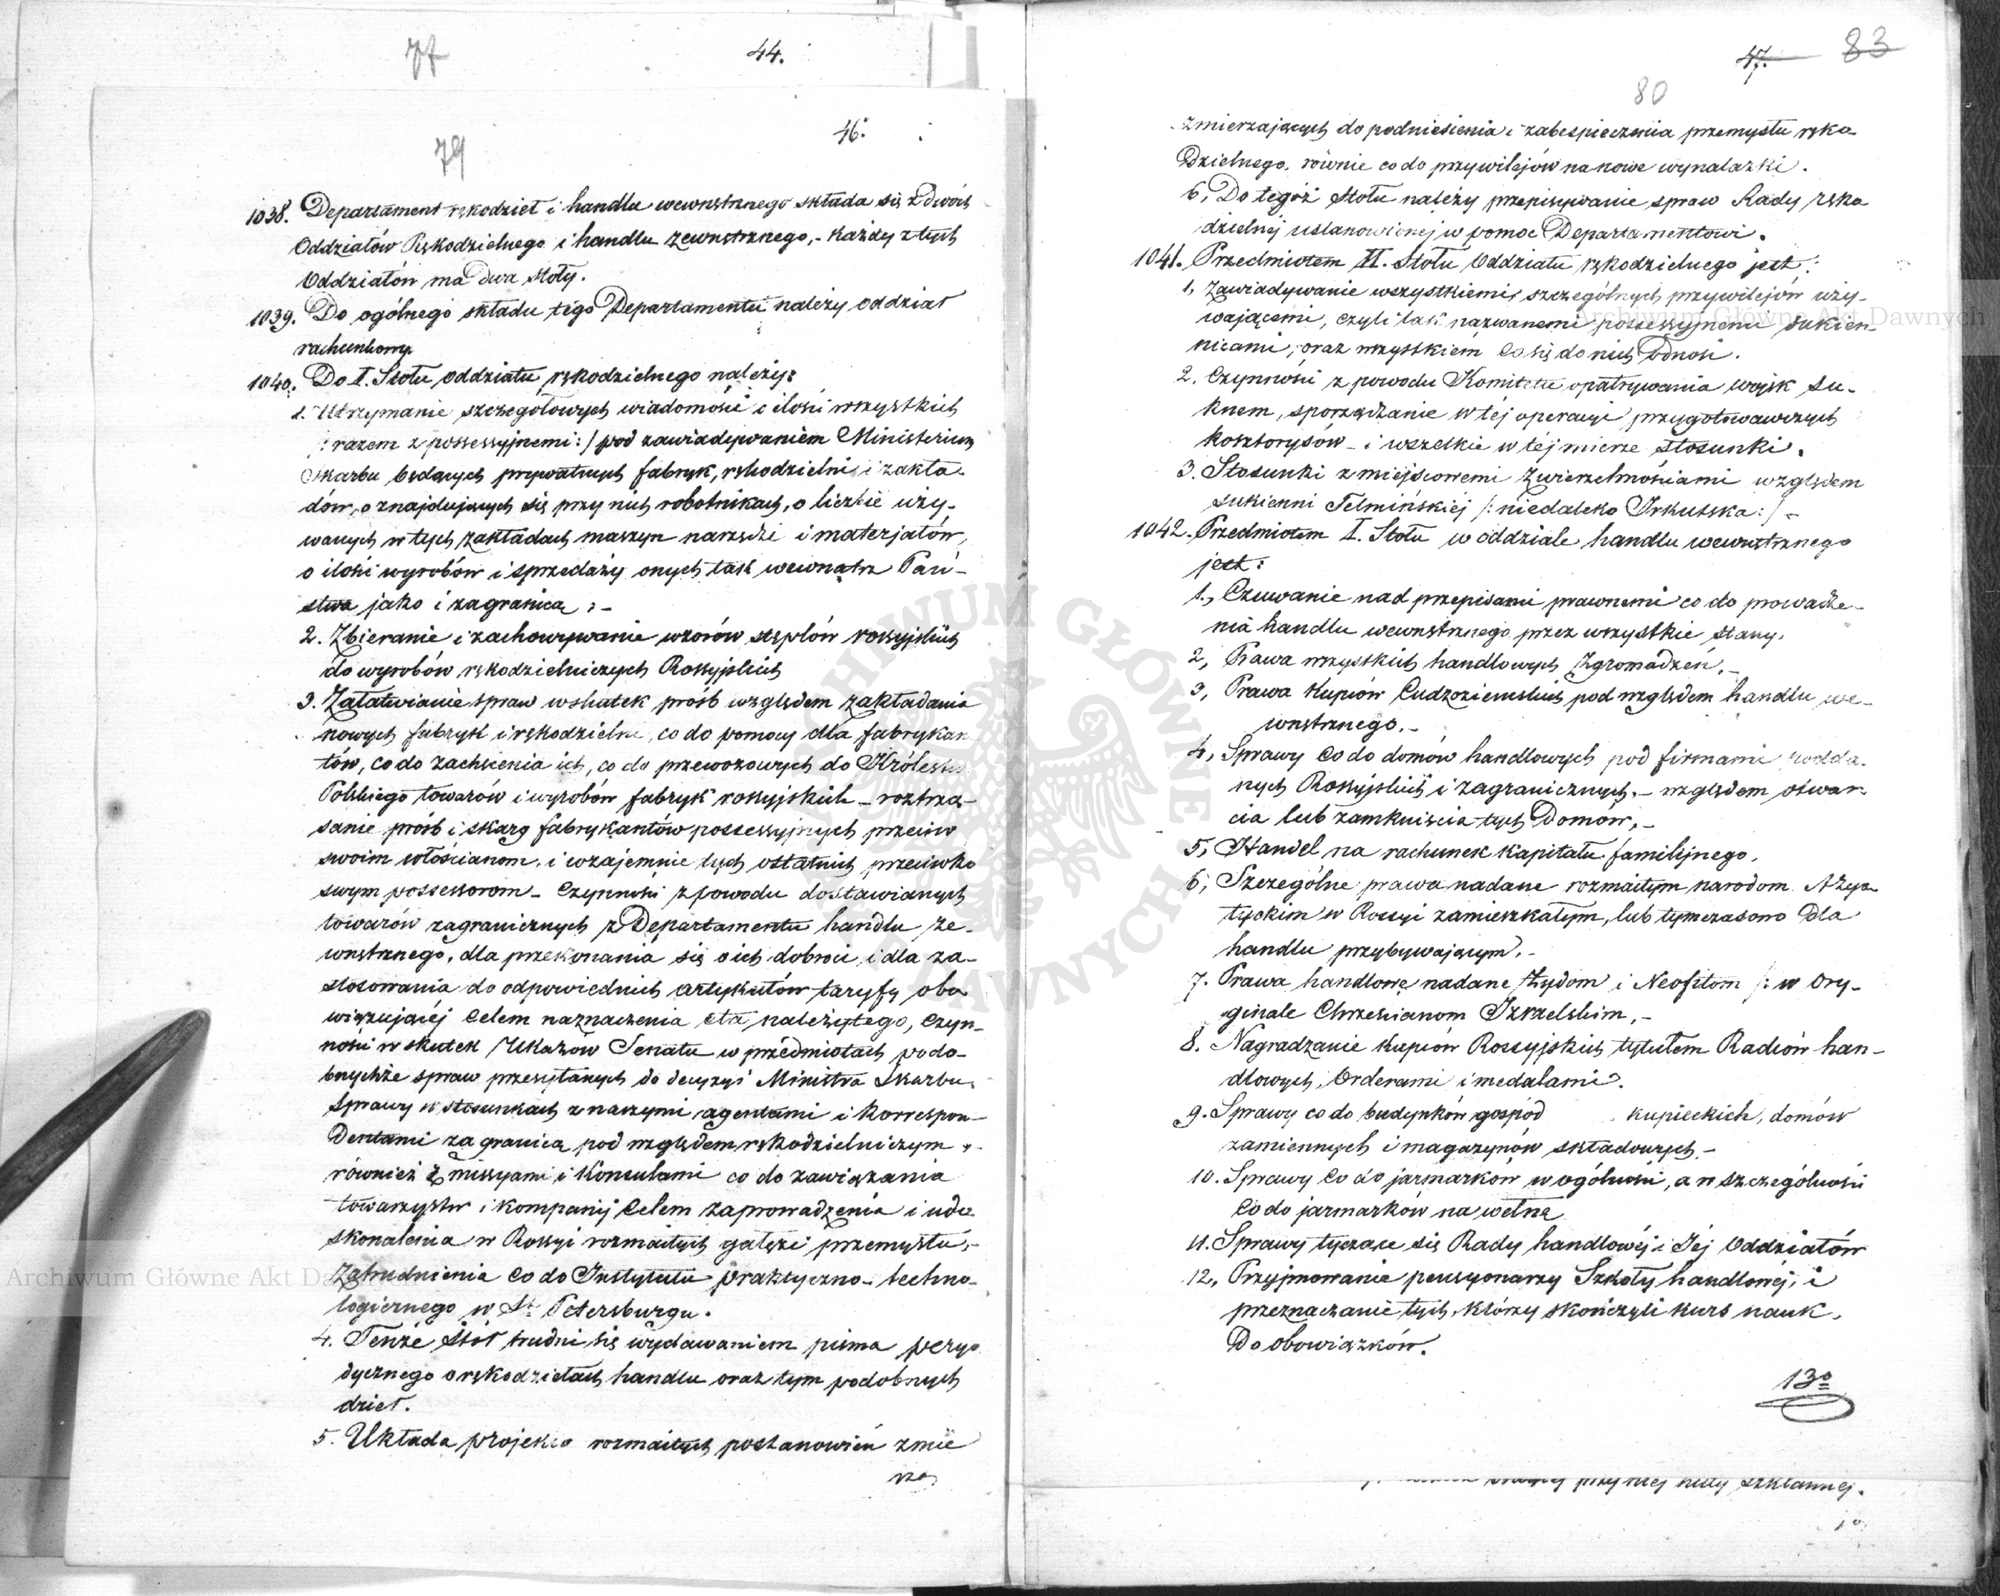 77
44.
79
46.
1038. Departament rękodzieł i handlu wewnętrznego składa się z dwóch
Oddziałów Rękodzielnego i handlu zewnętrznego,- każdy z tych
Oddziałów ma dwa stoły.
1039. Do ogólnego składu tego Departamentu należy oddział
rachunkowy.
1040. Do I. Stołu oddziału rękodzielnego należy:
1. Utrzymanie szczegółowych wiadomość o ilości wszystkich
/:razem z possessyjnemi:/ pod zawiadywaniem Ministerium
Skarbu będących prywatnych fabryk, rękodzielni, i zakła-
dów, o znajdujących się przy nich robotnikach, o liczbie uży-
wanych w tych zakładach maszyn narzędzi i materjałów,
o ilości wyrobów i sprzedaży onych tak wewnątrz Pań-
stwa jako i zagranicą ;-
2. Zbieranie i zachowywanie wzorów stęplów rossyjskich
do wyrobów rękodzielniczych Rossyjskich
3. Załatwianie spraw wskutek prośb względem zakładania
nowych fabryk i rękodzielni, co do pomocy dla fabrykan
tów, co do zachęcenia ich, co do przewozowych do Królestwa
Polskiego towarów i wyrobów fabryk rossyjskich - roztrzą-
sanie prośb i skarg fabrykantów possessyjnych przeciw
swoim włościanom, i wzajemnie tych ostatnich przeciwko
swym possessorom - Czynności z powodu dostawianych
towarów zagranicznych z Departamentu handlu ze-
wnętrznego, dla przekonania się o ich dobroci, i dla za-
stosowania do odpowiednich artykułów taryfy obo
wiązującéj celem naznaczenia cła należytego, czyn-
ności w skutek Ukazów Senatu w przédmiotach podo-
bnychże spraw przesyłanych do decyzyi Ministra Skarbu,
Sprawy w stosunkach z naszymi agentami i korrespon-
dentami za granicą pod względem rękodzielniczym -
również z missyami i Konsulami co do zawiązania
towarzystw i kompanij celem zaprowadzenia i udo
skonalenia w Rossyi rozmaitych gałęzi przemysłu,-
Zatrudnienia co do Instytutu praktyczno-techno-
logicznego w St. Petersburgu.
4. Tenże Stół trudni się wydawaniem pisma peryo
dycznego o rękodziełach handlu oraz tym podobnych
dzieł.
5. Układa projekta rozmaitych postanowień zmie
rza
47. 83
80
zmierzających do podniesienia i zabespieczenia przemysłu ręko
Dzielnego, równie co do przywilejów na nowe wynalazki.
6, Do tegóż Stołu należy przepisywanie spraw Rady ręko
dzielnéj ustanowionéj w pomoc Departamentowi.
1041. Przedmiotem II. Stołu Oddziału rękodzielnego jest:
1, Zawiadywanie wszystkiemi szczególnych przywilejów uży-
wającemi, czyli tak nazwanemi possessyjnemi sukien-
nicami, oraz wszystkiém co się do nich odnosi.
2. Czynności z powodu Komitetu opatrywania wojsk su-
knem, sporządzanie w téj operacyi przygotowawczych
kosztorysów - i wszelkie w téj mierze stosunki.
3. Stosunki z miejscowemi Zwierzchnościami względem
sukienni Telmińskiéj /:niedaleko Irkutska:/ -
1042. Przedmiotem I. Stołu w oddziale handlu wewnętrznego
jest:
1., Czuwanie nad przepisami prawnemi co do prowadze-
nia handlu wewnętrznego przez wszystkie stany.
2, Prawa wszystkich handlowych Zgromadzeń,-
3, Prawa Kupców Cudzoziemskich pod względem handlu we-
wnętrznego,-
4, Sprawy co do domów handlowych pod firmami podda-
nych Rossyjskich i zagranicznych,- względem otwar-
cia lub zamknięcia tych Domów,-
5, Handel na rachunek Kapitału familijnego.
6, Szczególne prawa nadane rozmaitym narodom Azya-
tyckim w Rossyi zamieszkałym, lub tymczasowo dla
handlu przybywającym,-
7. Prawa handlowe nadane Żydom i Neofitom /: w ory-
ginale Chrześcianom Izraelskim,-
8. Nagradzanie Kupców Rossyjskich tytułem Radców han-
dlowych, Orderami i medalami.
9. Sprawy co do budynków gospod kupieckich, domów
zamiennych i magazynów składowych.-
10. Sprawy co do jarmarków w ogólności, a w szczególności
co do jarmarków na wełnę
11. Sprawy tyczące się Rady handlowéj i Jéj Oddziałów
12, Przyjmowania pensyonarzy Szkoły handlowéj, i
przeznaczanie tych, którzy skończyli kurs nauk,
Do obowiązków.
13o
przy niéj huty szklannéj.
Archiwum Główne Akt Dawnych
Archiwum Główne Akt Dawnych
ARCHIWUM GŁÓWNE AKT DAWNYCH